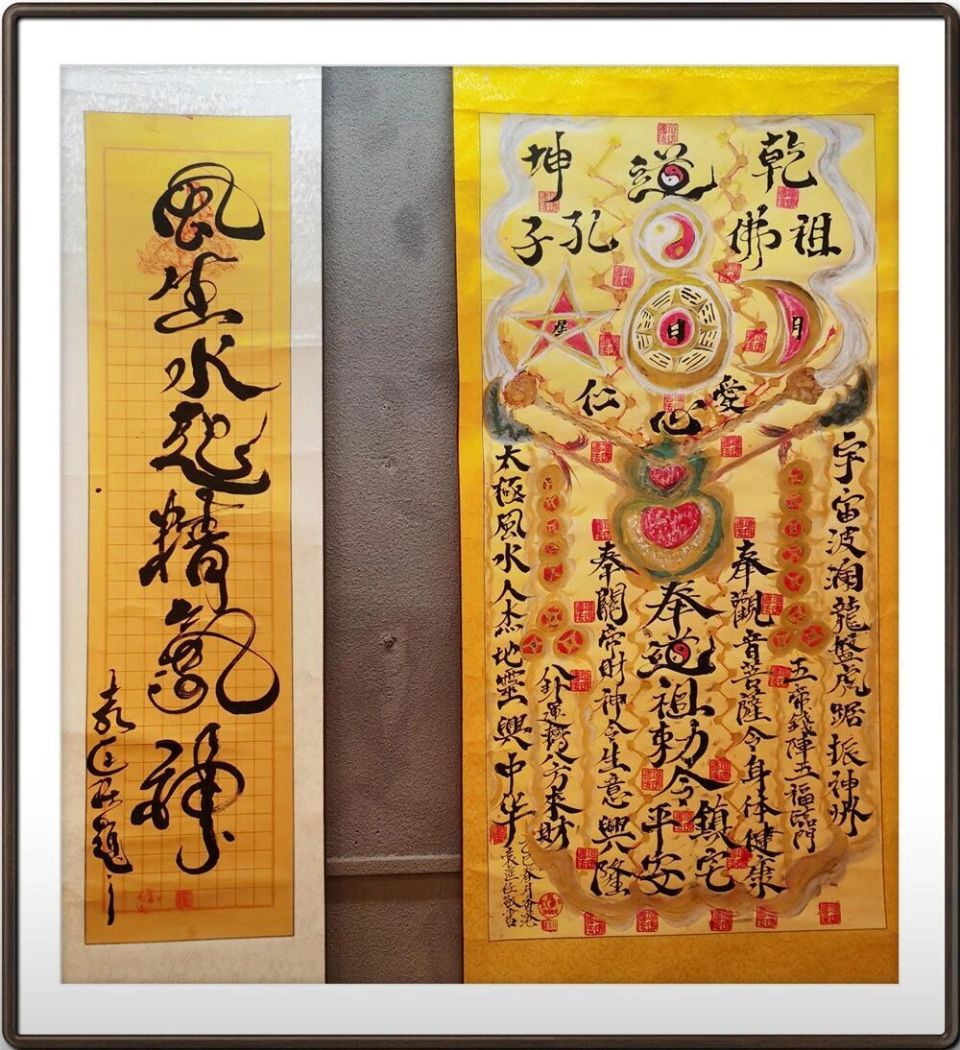 風生水起精氣神
乾
道
坤
佛祖
孔子
星
日
月
仁
心
愛
宇宙波瀾龍盤虎踞振神州
五帝錢陣五福臨門
奉觀音菩薩令身体健康
奉道祖勅令鎮宅平安
奉關帝財神令生意興隆
八卦運轉八方來財
太極風水人杰地靈興中华
乙巳春月香港